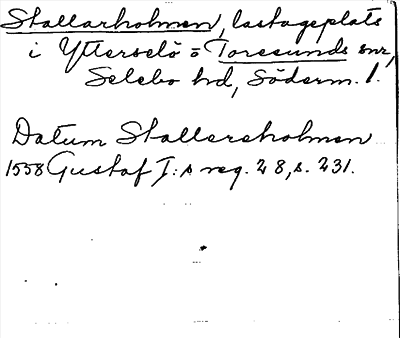 Stallarholmen, lastageplats
i Ytterselö o Toresunds snr,
Selebo hd, Söderm. l.
Datum Stallersholmen
1558 Gustaf I:s reg. 28, s. 231.